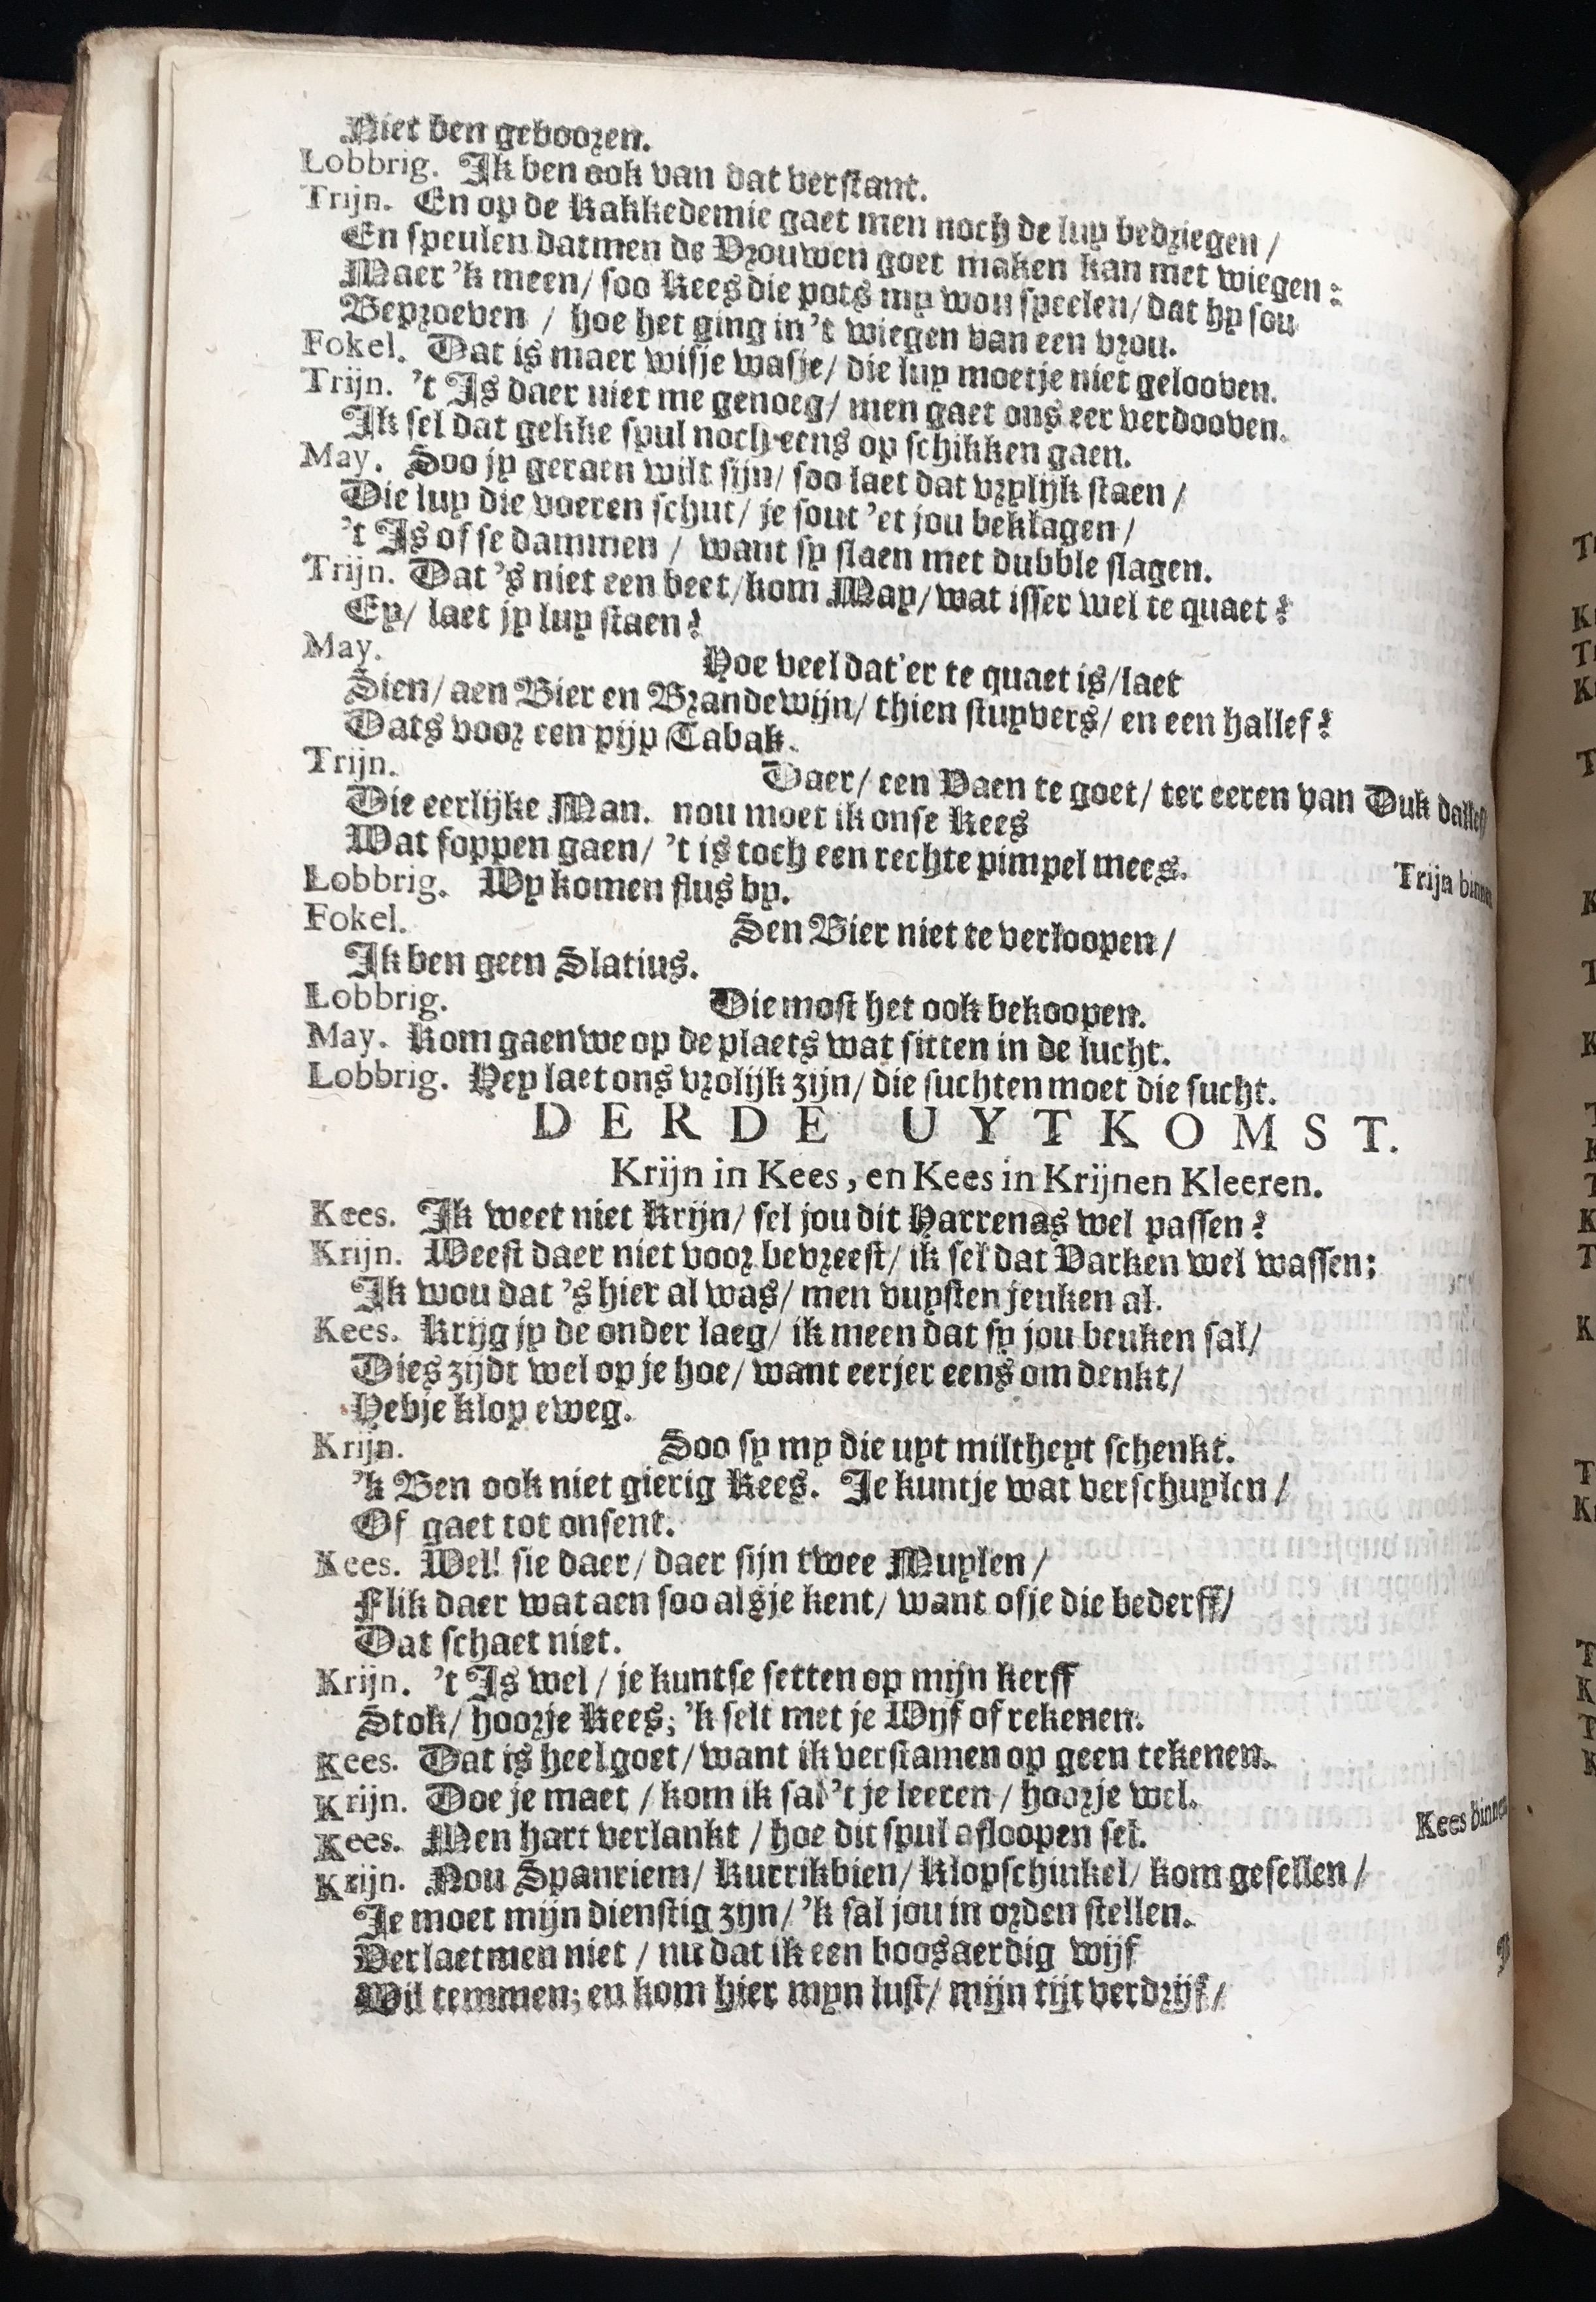 Niet ben gebooren.
Lobbrig. Ik ben ook van dat verstant.
Trijn. En op de Kakkedemie gaet men noch de luy bedriegen /
En speulen datmen de Vrouwen goet maken kan met wiegen:
Maer 'k meen / soo Kees die pots my wou speelen / dat hy sou
Beproeven / hoe het ging in 't wiegen van een vrou.
Fokel. Dat is maer wisje wasje / die luy moetje niet gelooven.
Trijn. 't Is daer niet me genoeg / men gaet ons eer verdooven.
Ik sel dat gekke spul noch eens op schikken gaen.
May. Soo jy geraen wilt sijn / soo laet dat vrylijk staen /
Die luy die voeren schut / je sout 'et jou beklagen /
't Is of se dammen / want sy slaen met dubble slagen.
Trijn. Dat 's niet een beet / kom May / wat isser wel te quaet?
Ey / laet jy luy staen?
May. Hoe veel dat'er te quaet is / laet
Sien / aen Bier en Brandewijn / thien stuyvers / en een hallef?
Dats voor een pijp Tabak.
Trijn. Daer / een Vaen te goet / ter eeren van Duk dallef
Die eerlijke Man. nou moet ik onse Kees
Wat foppen gaen / 't is toch een rechte pimpel mees.
Trijn binnen
Lobbrig. Wy komen flus by.
Fokel. Sen Bier niet te verloopen /
Ik ben geen Slatius.
Lobbrig. Die most het ook bekoopen.
May. Kom gaen we op de plaets wat sitten in de lucht.
Lobbrig. Hey laet ons vrolijk zijn / die suchten moet die sucht.
DERDE UYTKOMST.
Krijn in Kees, en Kees in Krijnen Kleeren.
Kees. Ik weet niet Krijn / sel jou dit Harrenas wel passen?
Krijn. Weest daer niet voor bevreest / ik sel dat Varken wel wassen;
Ik wou dat 's hier al was / men vuysten jeuken al.
Kees. Krijg jy de onder laeg / ik meen dat sy jou beuken sal /
Dies zijdt wel op je hoe / want eerjer eens om denkt /
Hebje klop eweg.
Krijn. Soo sy my die uyt miltheyt schenkt.
'k Ben ook niet gierig Kees. Je kuntje wat verschuylen /
Of gaet tot onsent.
Kees. Wel! sie daer / daer sijn twee Muylen /
Flik daer wat aen soo alsje kent / want ofje die bederff /
Dat schaet niet.
Krijn. 't Is wel / je kuntse setten op mijn kerff
Stok / hoorje Kees; 'k selt met je Wijf of rekenen.
Kees. Dat is heel goet / want ik verstamen op geen tekenen.
Krijn. Doe je maer / kom ik sal 't je leeren / hoorje wel.
Kees. Men hart verlankt / hoe dit spul afloopen sel.
Kees binnen
Krijn. Nou Spanriem / Kurrikbien / Klopschinkel / kom gesellen /
Je moet mijn dienstig zijn / 'k sal jou in orden stellen.
Verlaetmen niet / nu dat ik een boosaerdig wijf
Wil temmen; en kom hier myn lust / mijn tijt verdrijf /